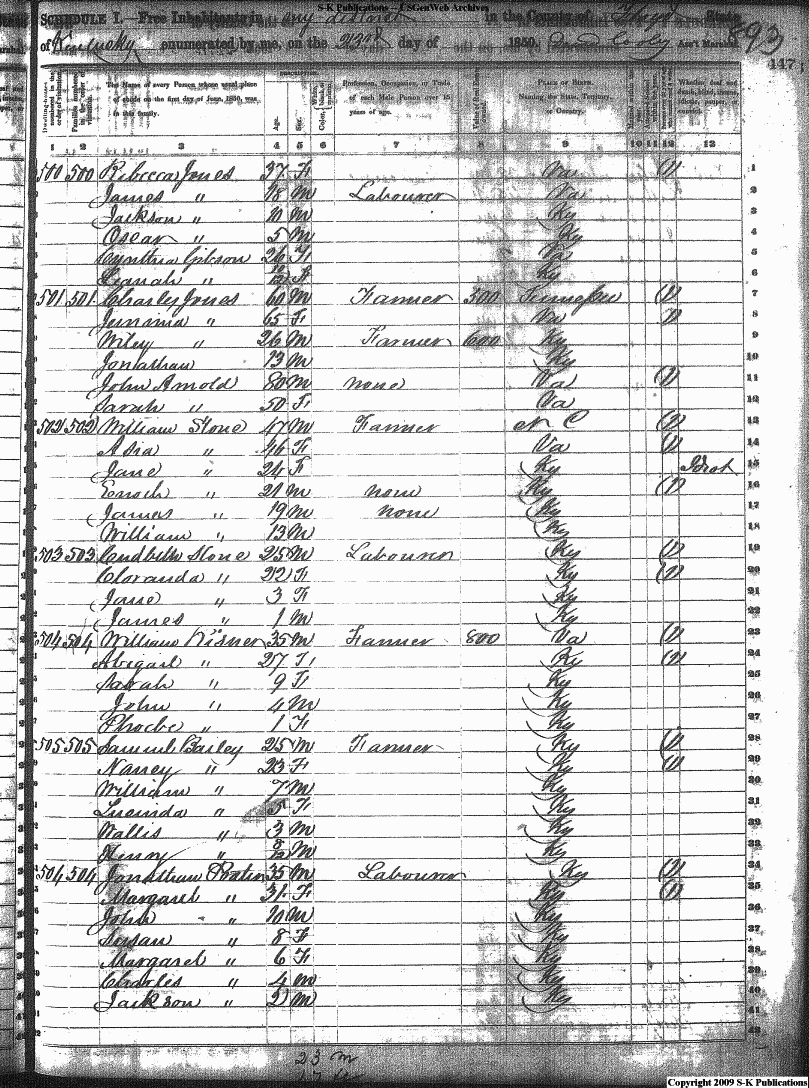 S-K Publications - USGenWeb Archives
SCHEDULE I. Free Inhabitants in any district in the County of Floyd State
of Kentucky enumerated by me, on the 23rd day of 1850. David Cooley Ass't Marshal. 893
447
The Name of every Person whose usual place of abode on the first day of June, 1850, was in this family. Age. Sex. Profession, Occupation, or Trade of each Male Person over 15 years of age. PLACE OF BIRTH. Naming the State, Territory, or Country.
1 2 3 4 5 6 7 8 9 10 11 12 13
500 500 Rebecca Jones 37 F Va (1) 1
James " 18 M Labourer Va 2
Jackson " 10 M Ky 3
Oscar " 5 M Ky 4
Cynthia Gibson 26 F Va 5
" F Ky 6
501 501 Charley Jones 60 M Farmer 300 Tennessee (1) 7
Jemima " 65 F Va 1) 8
Wiley " 26 M Farmer 600 Ky 9
Jonathan 13 M Ky 10
John Arnold 80 M none Va (1) 11
Sarah " 50 F Va 12
502 502 William Stone 47 M Farmer N C (1) 13
Asia " 46 F Va (1) 14
Jane " 24 F Ky Idiot 15
Enoch " 21 M none Ky (1) 16
James " 19 M none Ky 17
William " 13 M Ky 18
503 503 Cudbeth Stone 25 M Labourer Ky (1) 19
Cloranda " 22 F Ky (1) 20
Jane " 3 F Ky 21
James " 1 M Ky 22
504 504 William Risner 35 M Farmer 800 Va (1) 23
Abigail " 27 F Ky (1) 24
Sarah " 9 F Ky 25
John " 4 M Ky 26
Phoebe " 1 F Ky 27
505 505 Samuel Bailey 25 M Farmer Ky (1) 28
Nancy " 23 F Ky (1) 29
William " 7 M Ky 30
Lucinda " 5 F Ky 31
Wallis " 3 M Ky 32
Henry " 8/12 M Ky 33
504 504 Jonathan Prater 35 M Labourer Ky (1) 34
Margaret " 31 F Ky (1) 35
John " 10 M Ky 36
Susan " 8 F Ky 37
Margaret " 6 F Ky 38
Charles " 4 M Ky 39
Jackson " 2 M Ky 40
41
42
23 m
Copyright 2009 S-K Publications